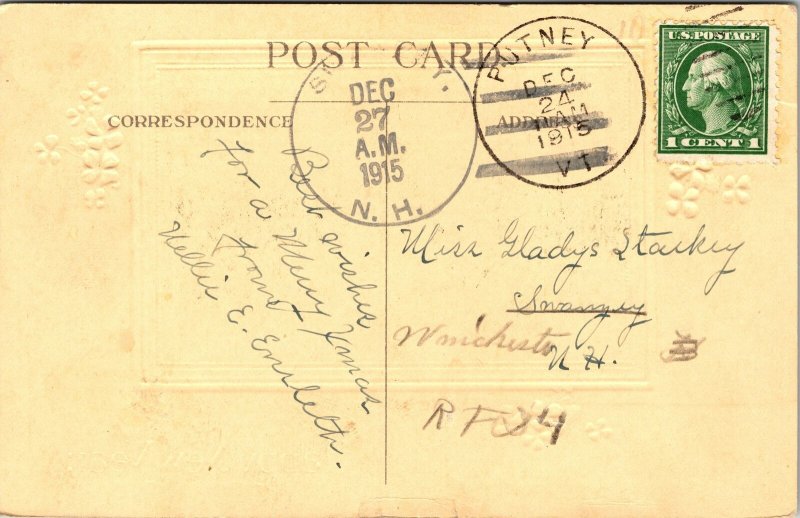 POST CARD
CORRESPONDENCE
DEC
27
A.M.
1915
N. H.
PUTNEY
DEC
24
AM
1915
VT
U.S. POSTAGE
1 CENT 1
Best wishes
for a Merry Xmas
from
Nellie E.
Miss Gladys Starkey
Swanzey
Winchester
N.H.
R F D 4